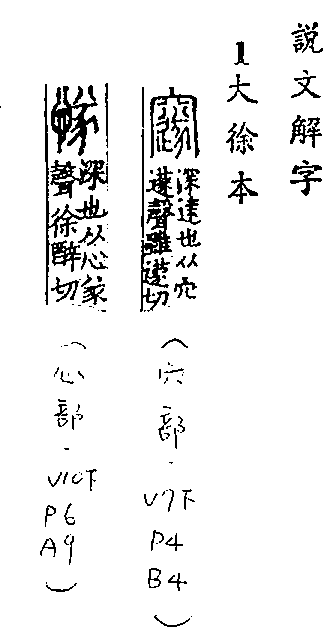 説文解字
1大徐本
邃 深遠也从穴
遂聲雖遂切
(穴部.V7下
P4
B4)
深也从心㒸
聲徐醉切
(心部.V10下
P6
A9)